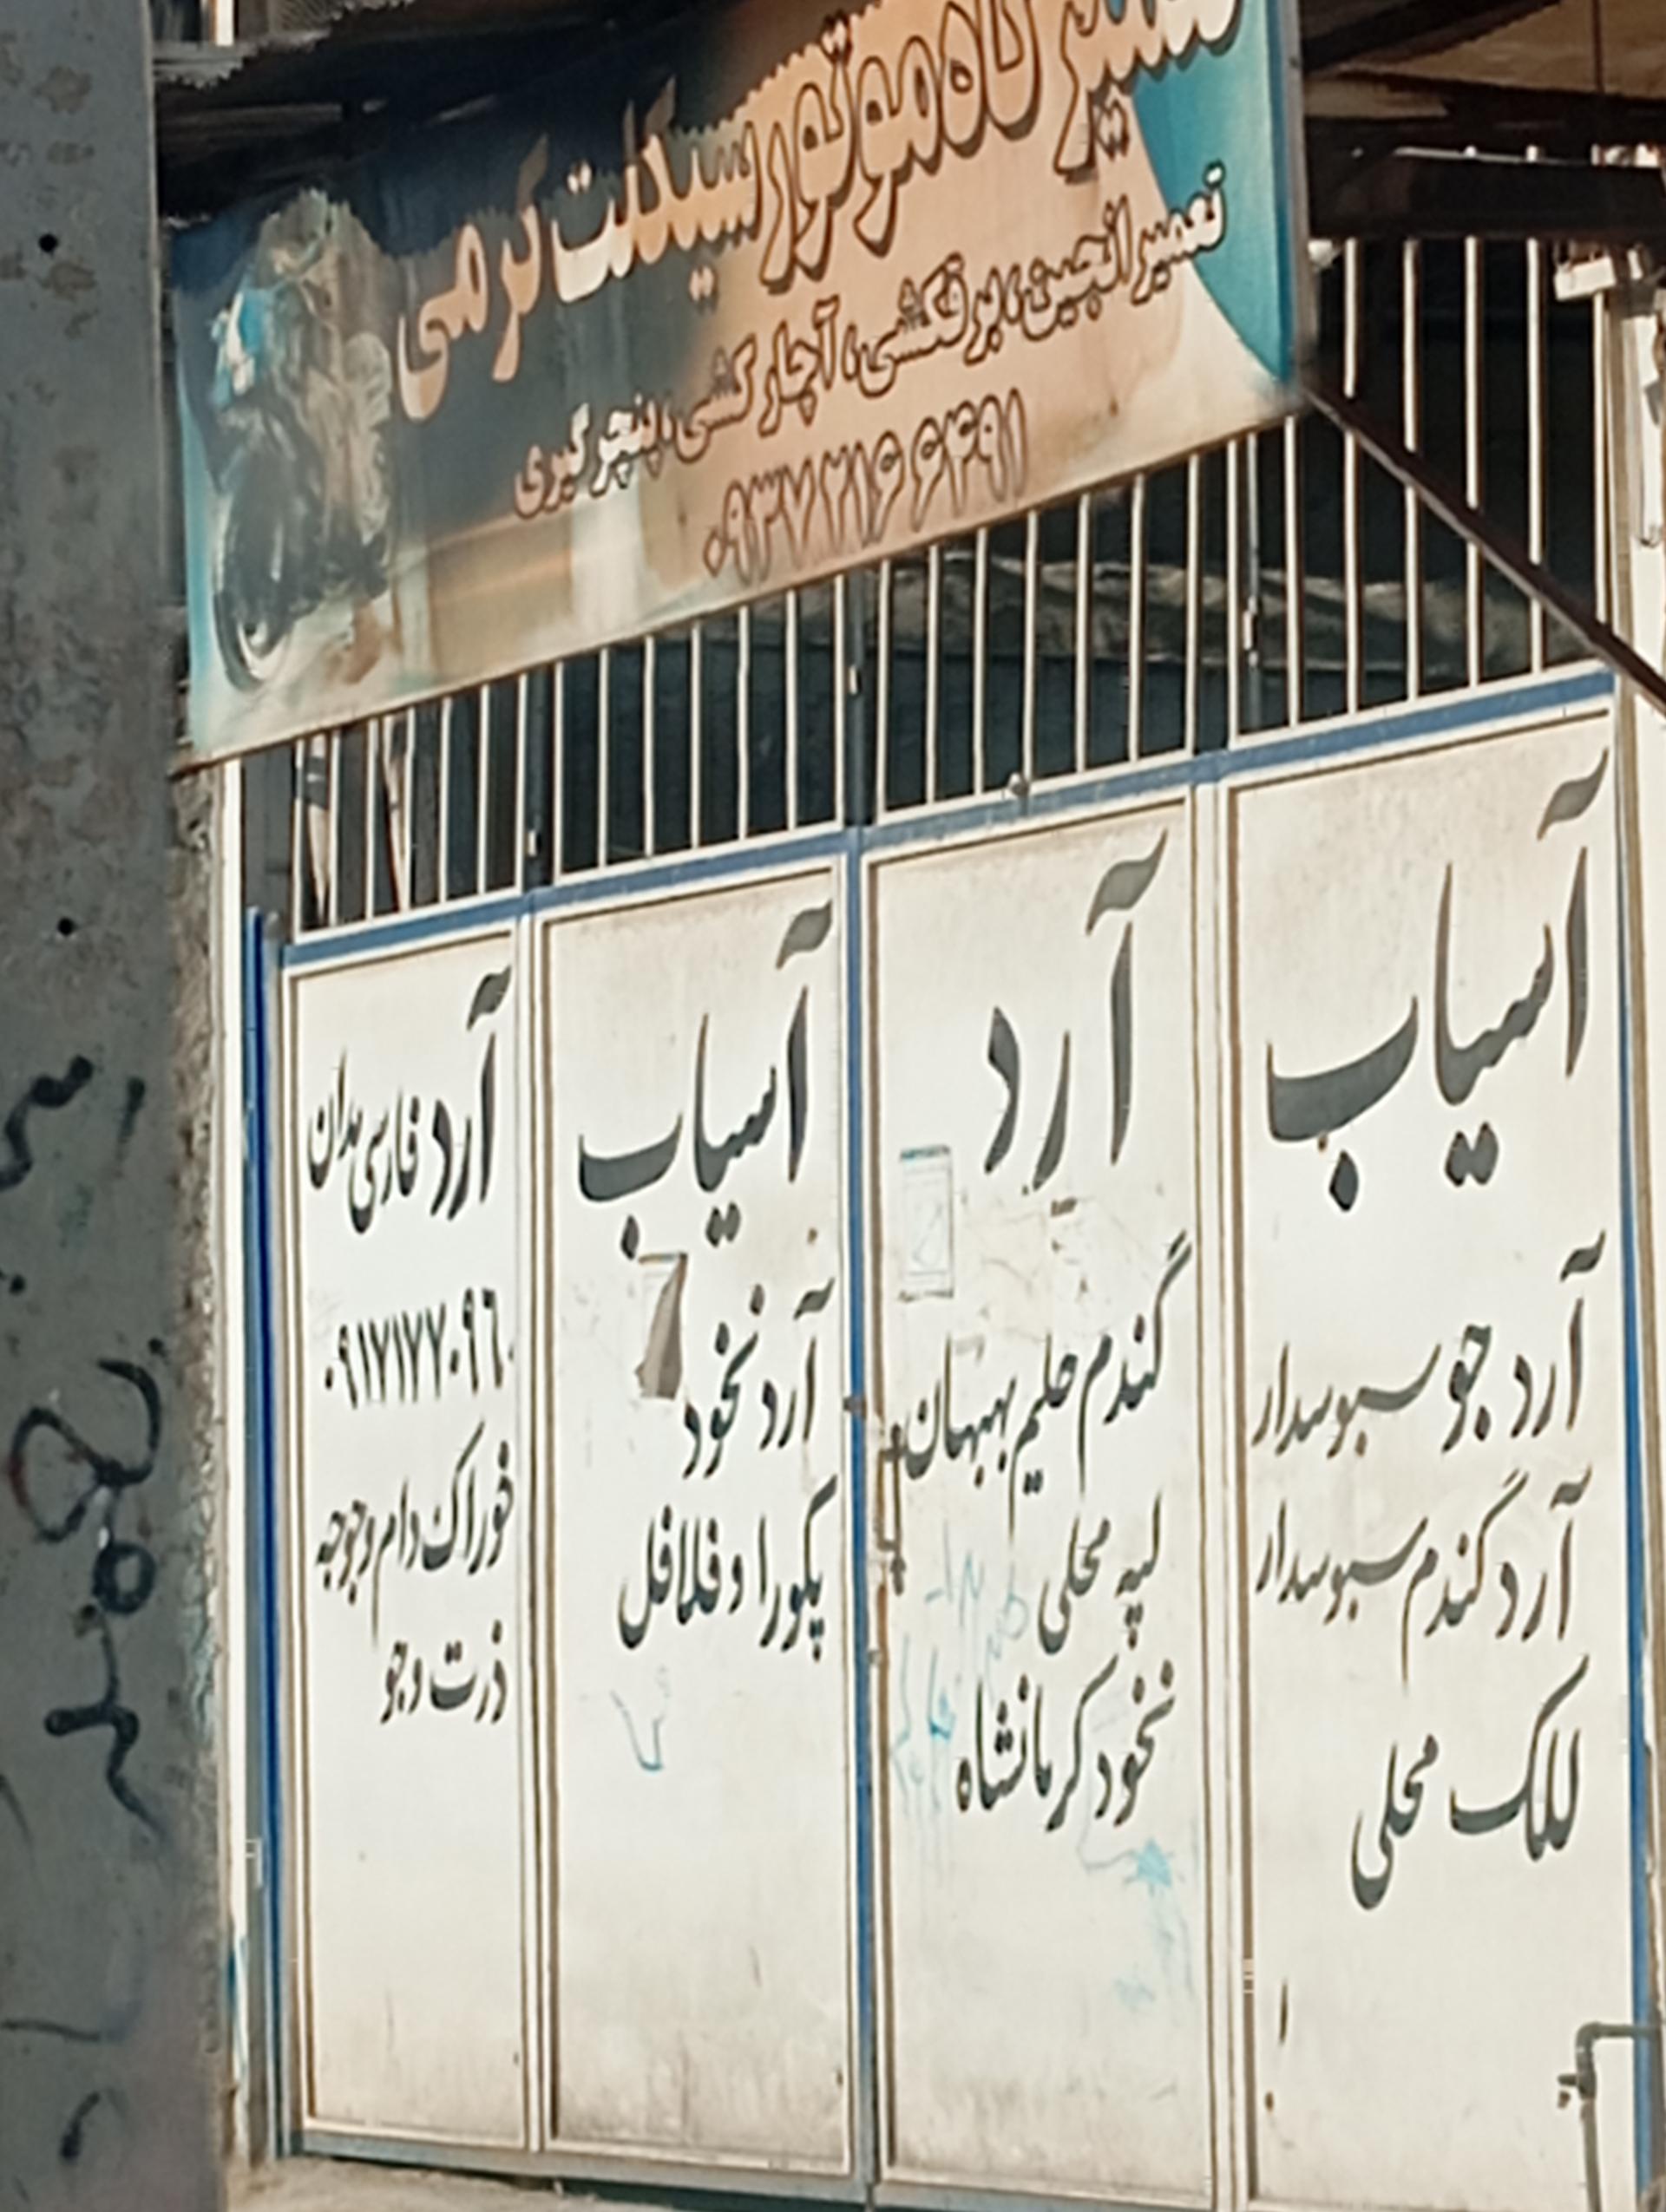 تعمیرگاه موتورسیکلت کرمی
تعمیر انجین، برقکشی، آچارکشی، پنچرگیری
آسیاب
آرد جو سبوسدار
آرد گندم سبوسدار
للک محلی
آرد
گندم حلیم بهبهان
لپه محلی
نخود کرمانشاه
آسیاب
آرد نخود
پکورا و فلافل
آرد فارسی مدان
۰۹۱۷۱۷۷۰۹۶۰
خوراک دام و جوجه
ذرت و جو